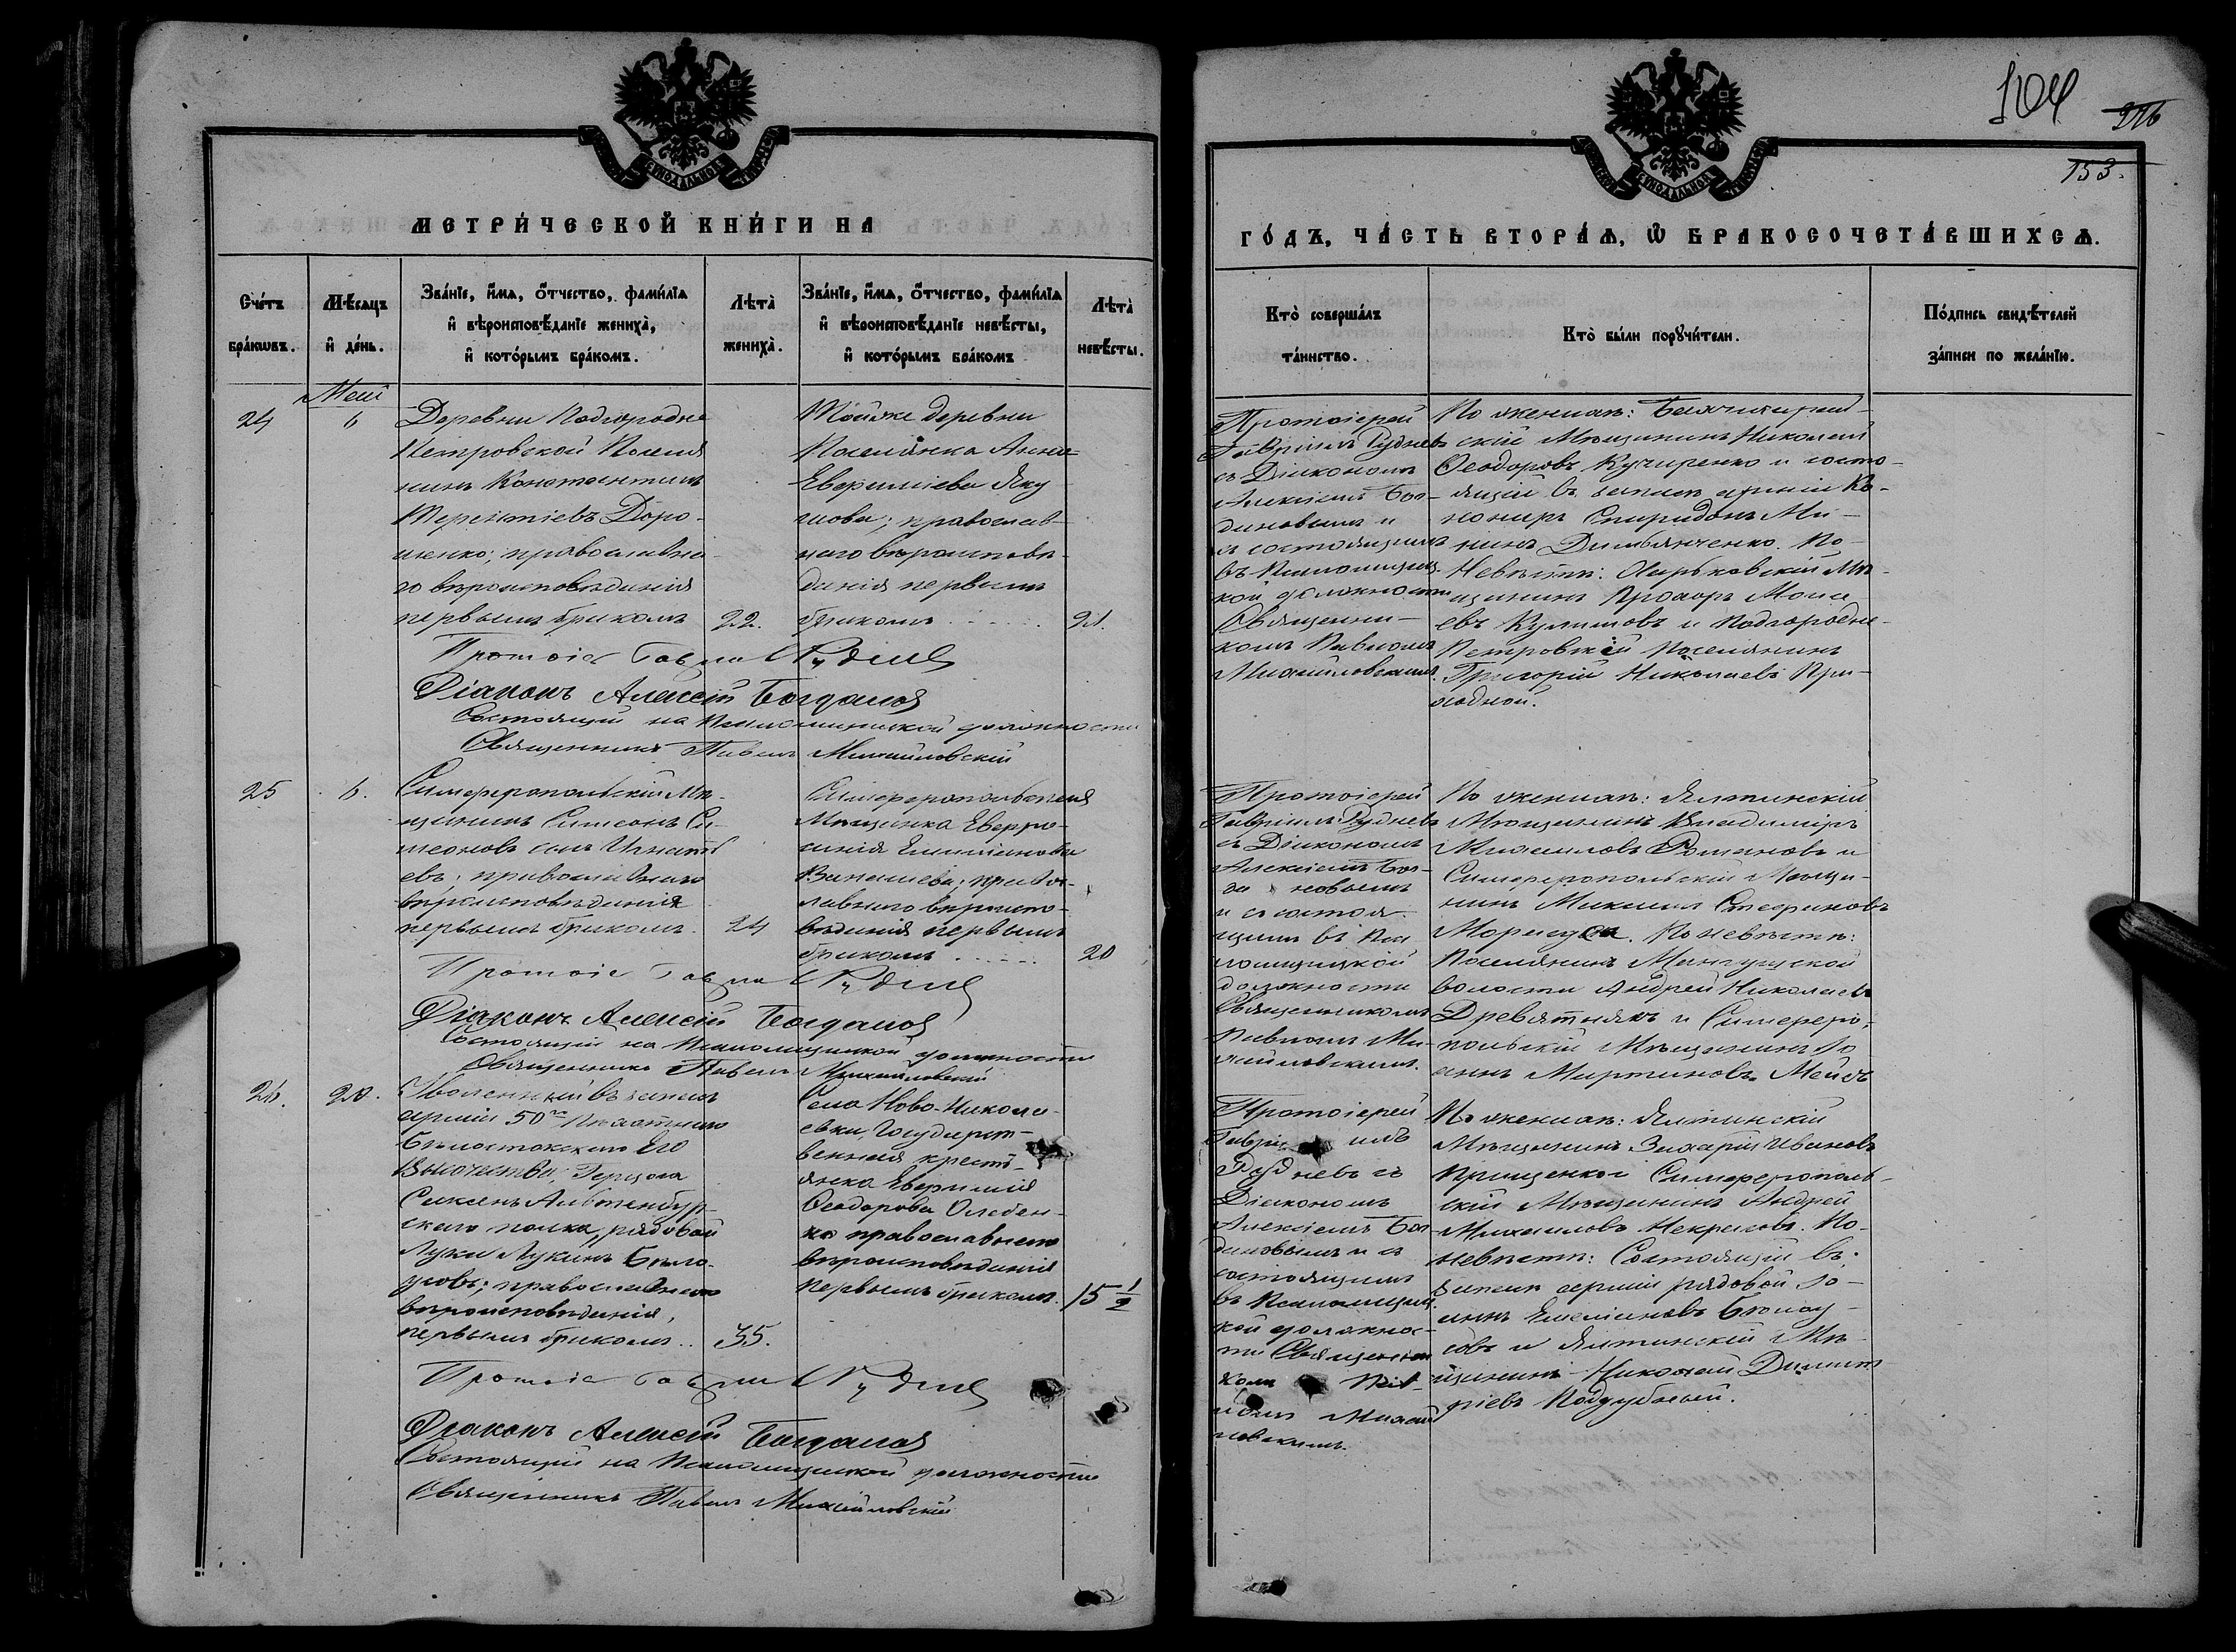 104
276
153.
МЕТРИ́ЧЕСКОЙ КНИ́ГИ НА
ГО́ДЪ, ЧА́СТЬ ВТОРА́Я, Ѡ БРАКОСОЧЕТА́ВШИХСЯ.
Счётъ бра́ковъ.
Мѣ́сяцъ и де́нь.
Зва́нїе, и́мя, о́тчество, фами́лїя и вѣроисповѣ́данїе жениха̀, и кото́рымъ бра́комъ.
Лѣта̀ жениха̀.
Зва́нїе, и́мя, о́тчество, фами́лїя и вѣроисповѣ́данїе невѣ́сты, и кото́рымъ бра́комъ
Лѣта̀ невѣ́сты.
Кто̀ соверша́лъ та́инство.
Кто̀ бы́ли поручи́тели.
По́дпись свидѣ́телей за́писи по жела́нїю.
Маій
24
6
Деревни Подгородне
Петровской Поселя
нинъ Константинъ
Терентіевъ Доро-
шенко; православна-
го вѣроисповѣданія
первымъ бракомъ
22.
Тойже деревни
Поселянка Анна
Евфиміева Яку
нова; православ-
наго вѣроисповѣ-
данія первымъ
бракомъ
21.
Протоіерей
Гавріилъ Рудневъ
съ Діакономъ
Алексіемъ Бог-
дановымъ и
съ состоящимъ
въ Псаломщиц-
кой должности
Священни-
комъ Павломъ
Михайловскимъ.
По женихѣ:
скій Мѣщанинъ Николай
Ѳеодоровъ Кучеренко и состо-
ящій въ запасѣ арміи Ка-
нониръ Спиридонъ Ми-
нинъ Демьянченко. По
Невѣстѣ: Харьковскій Мѣ-
щанинъ Прохоръ Моисе
евъ Куликовъ и Подгородне-
Петровскій Поселянинъ
Григорій Николаевъ При-
ходной.
Протоіе Гавріи Рудне
Діаконъ Алексій Богданов
Состоящій на Псаломщицкой должности
Священникъ Павелъ Михайловскій
25
6.
Симферопольскій Мѣ-
щанинъ Симеонъ Си-
меоновъ сынъ Игнатъ
евъ; православнаго
вѣроисповѣданія
первымъ бракомъ.
24
Симферопольская
Мѣщанка Евфро-
синія Емиліанова
; право-
славнаго вѣроиспо-
вѣданія первымъ
бракомъ
20
Протоіерей
Гавріилъ Рудневъ
съ Діакономъ
Алексіемъ Бог-
да новымъ
и съ состоя-
щимъ въ Пса
ломщицкой
должности
Священникомъ
Павломъ Ми-
хайловскимъ.
По женихѣ: Ялтинскій
Мѣщанинъ Владиміръ
Михаиловъ Романовъ и
Симферопольскій Мѣща-
нинъ Михаилъ Стефановъ
По невѣстѣ:
Поселянинъ Мангушской
волости Андрей Николаевъ
Древятнякъ и Симферо-
польскій Мѣщанинъ Іо
аннъ Мартиновъ
Протоіе Гавріи Рудне
Діаконъ Алексій Богданов
Состоящій на Псаломщицкой должности
Священникъ Павелъ Михайловскій
26.
20.
Уволенный въ запасъ
арміи 50го Пѣхотнаго
Бѣлостокскаго Его
Высочества, Герцога
Саксенъ Альтенбург-
скаго полка, рядовой
Лука Лукинъ Бѣло-
усовъ; православнаго
вѣроисповѣданія,
первымъ бракомъ..
35.
Села Ново-Никола-
евки, Государст-
венная кресть-
янка Евфимія
Ѳеодорова
православнаго
вѣроисповѣданія
первымъ бракомъ.
15 1/2
Протоіерей
Гаврі илъ
Рудневъ съ
Діакономъ
Алексіемъ Бог
дановымъ и съ
состоящимъ
въ Псаломщиц
кой должнос-
ти Священни
комъ Пав-
ломъ Михай
ловскимъ.
По женихѣ: Ялтинскій
Мѣщанинъ Захарій Ивановъ
Прищенко и Симферополь-
скій Мѣщанинъ Андрей
Михаиловъ Некрасовъ. По-
невѣстѣ: Состоящій въ
запасѣ арміи рядовой Іо-
аннъ Емеліановъ
и Ялтинскій Мѣ-
щанинъ Николай Димит
ріевъ Поддубный.
Протоіе Гавріи Рудне
Діаконъ Алексій Богданов
Состоящій на Псаломщицкой должности
Священникъ Павелъ Михайловскій